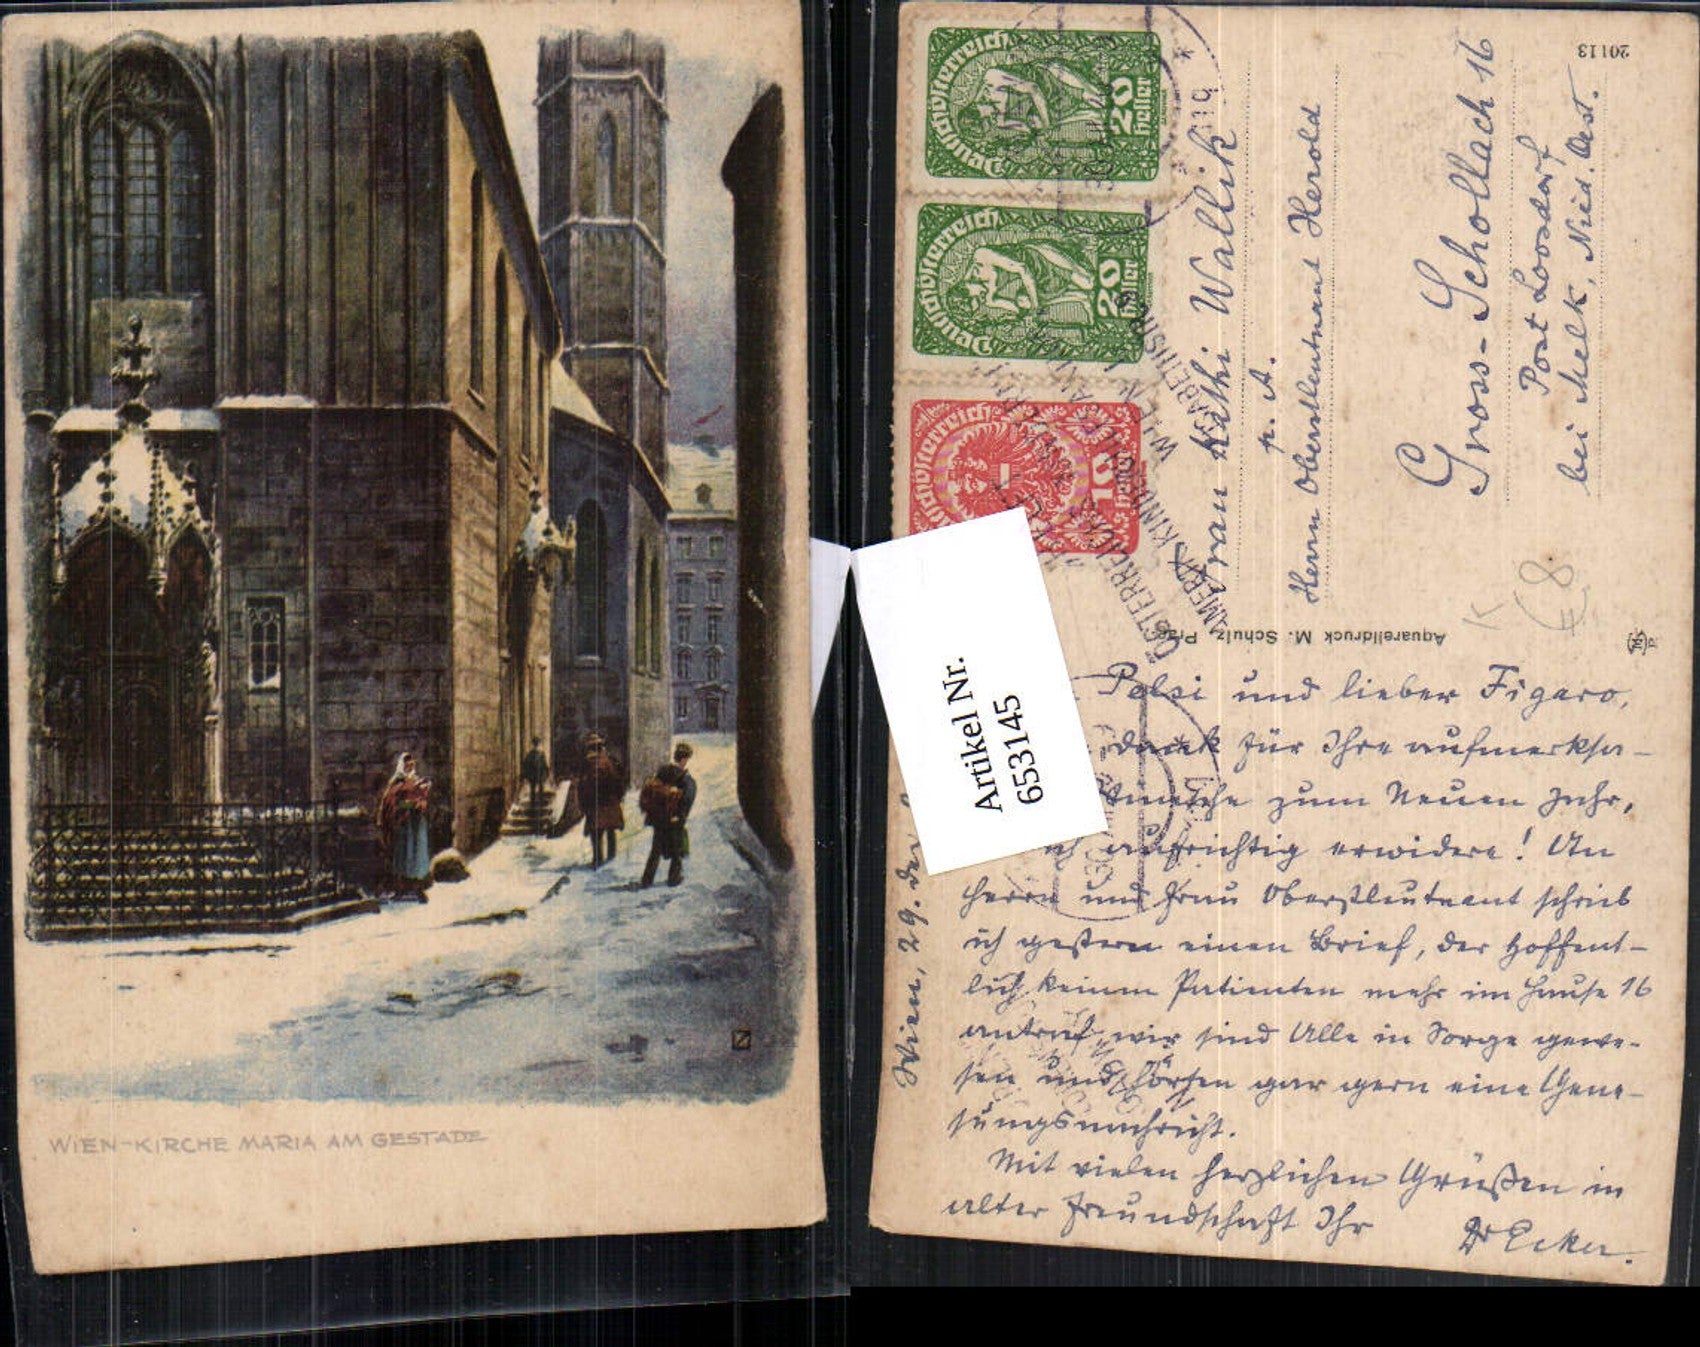 WIEN-KIRCHE MARIA AM GESTADE
Deutschösterreich
20
Heller
Deutschösterreich
20
Heller
Deutschösterreich
10
Heller
ÖSTERREICHISCHE
AMERIK. KINDERHILFSAKTION
WIEN, I.
ELISABETHSTR. 9
Artikel Nr.
653145
20113
Frau Käthi Wallik
p. A.
Herrn Oberstleutnant Herold
Gross-Schollach 16
Post Loosdorf
bei Melk, Nied. Oest.
Aquarelldruck M. Schulz, Prag
K
€8
Wien, 29. Dez.
Polsi und lieber Figaro,
dank für Ihre aufmerksa-
wünsche zum Neuen Jahr,
ich aufrichtig erwidere! An
Herrn und Frau Oberstleutnant schrieb
ich gestern einen Brief, der hoffent-
lich keinen Patienten mehr im Hause 16
antraf, wir sind Alle in Sorge gewe-
sen und hörten gar gern eine Gene-
sungsnachricht.
Mit vielen herzlichen Grüßen in
alter Freundschaft Ihr
Dr Ecker.